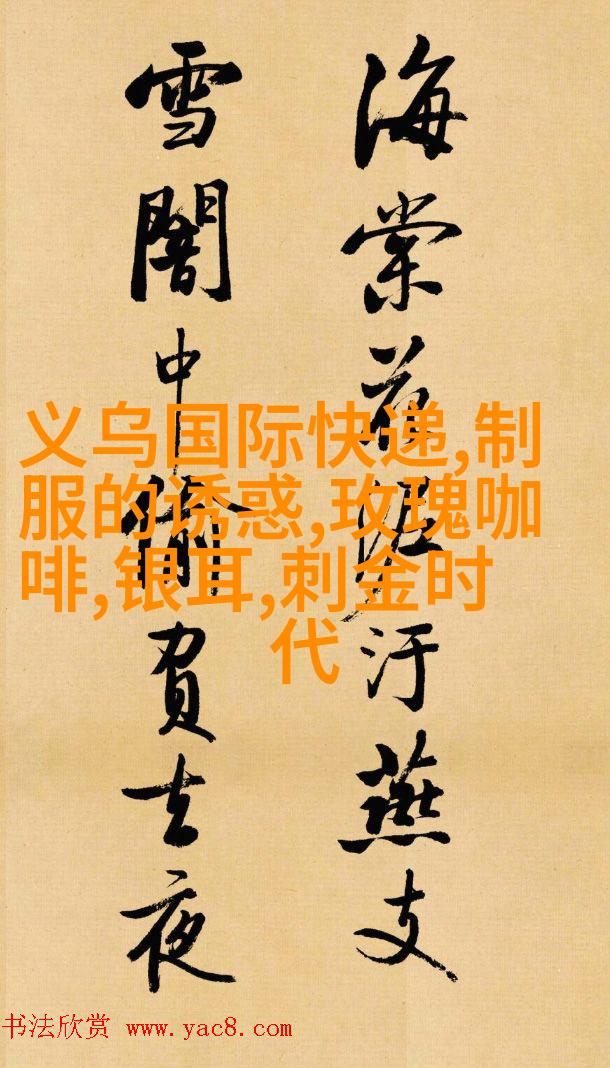 海棠花泥汙燕支
雪闇中偷負去夜
义乌国际快递,制
服的诱惑,玫瑰咖
啡,银耳,刺金时
代
书法欣赏 www.yac8.com